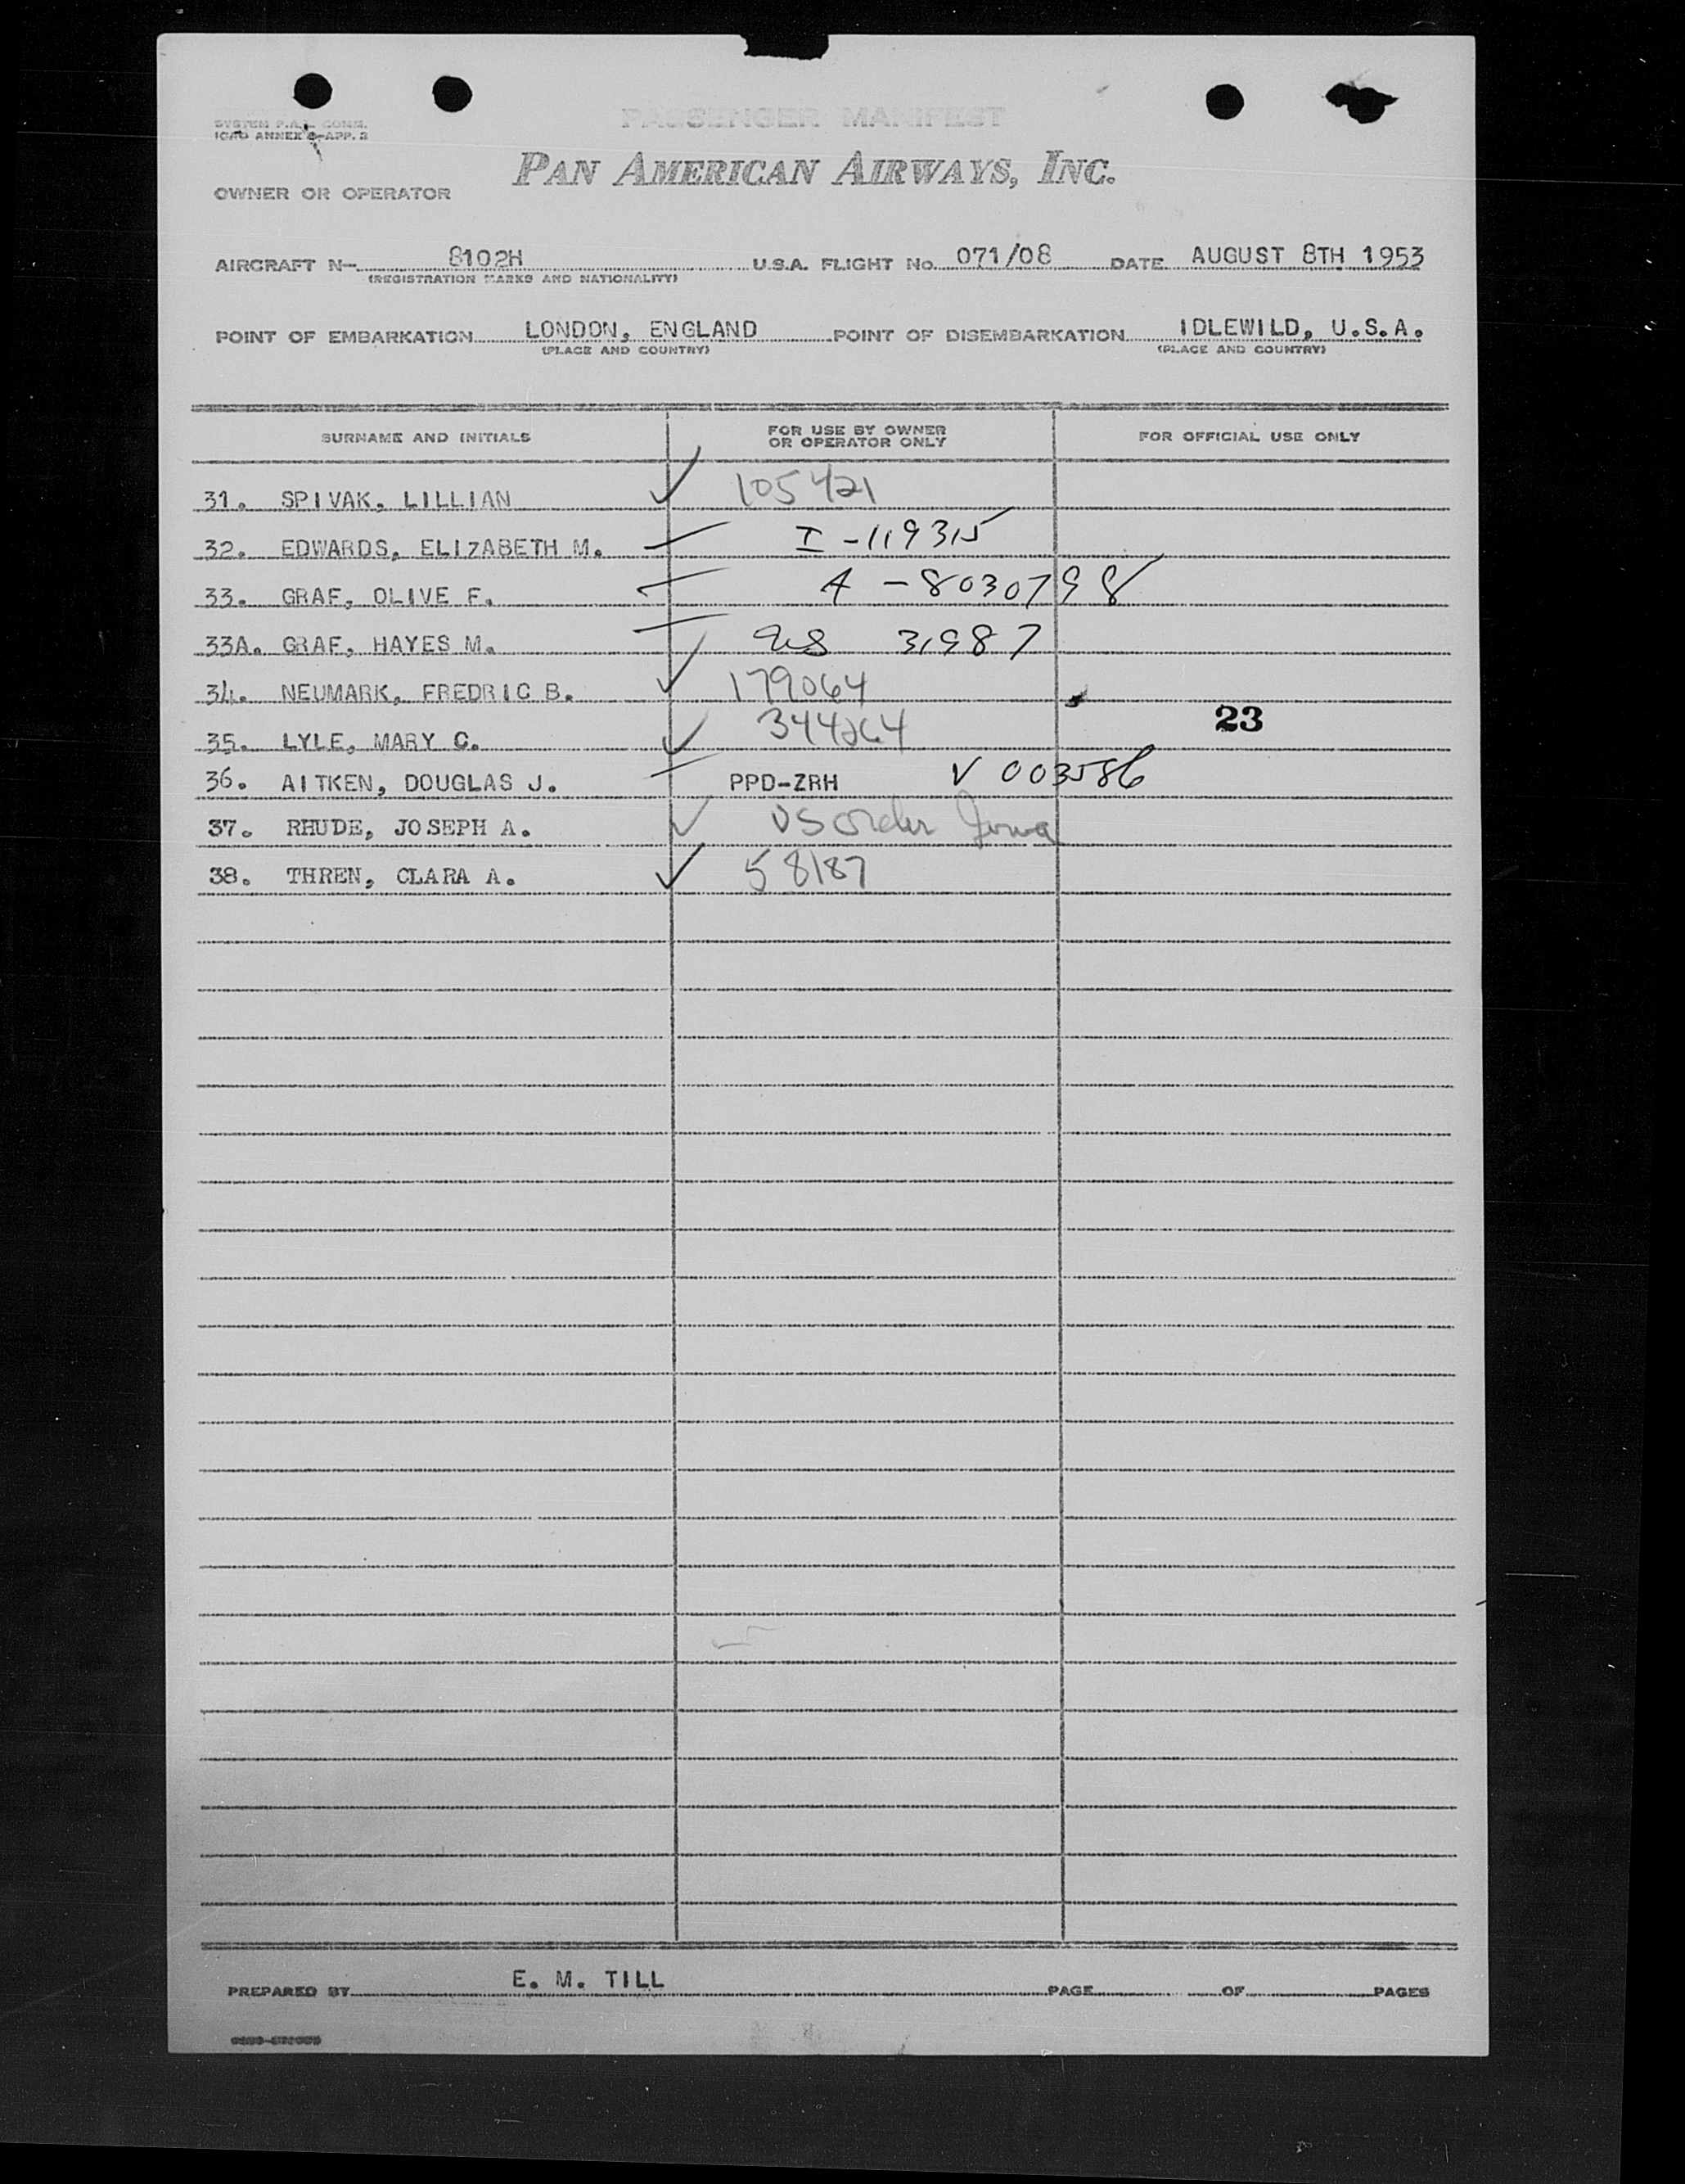 PASSENGER MANIFEST
ICAO ANNEX 9-APP. 2
PAN AMERICAN AIRWAYS, INC.
OWNER OR OPERATOR
AIRCRAFT N- 8102H U.S.A. FLIGHT No. 071/08 DATE AUGUST 8TH 1953
(REGISTRATION MARKS AND NATIONALITY)
POINT OF EMBARKATION LONDON, ENGLAND POINT OF DISEMBARKATION IDLEWILD, U.S.A.
(PLACE AND COUNTRY) (PLACE AND COUNTRY)
SURNAME AND INITIALS FOR USE BY OWNER OR OPERATOR ONLY FOR OFFICIAL USE ONLY
31. SPIVAK, LILLIAN ✓ 105421
32. EDWARDS, ELIZABETH M. I-119315
33. GRAF, OLIVE F. A-8030798
33A. GRAF, HAYES M. 31987
34. NEUMARK, FREDRIC B. ✓ 179064
35. LYLE, MARY C. ✓ 344264 23
36. AITKEN, DOUGLAS J. PPD-ZRH V 003586
37. RHUDE, JOSEPH A. ✓ US order
38. THREN, CLARA A. ✓ 58187
PREPARED BY E. M. TILL PAGE OF PAGES